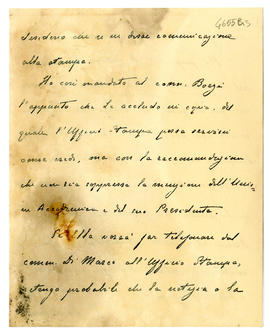 4655 Bis
desiderio che se ne desse comunicazione
alla stampa.
Ho così mandato al comm. Boezi
l'appunto che Le accludo in copia, del
quale l'Ufficio Stampa possa servirsi
come crede, ma con la raccomandazione
che non sia soppressa la menzione dell'Unio-
ne Accademica e del suo Presidente.
Se Ella vorrà far telefonare dal
comm. Di Marco all'Ufficio Stampa,
tengo probabile che la notizia o la